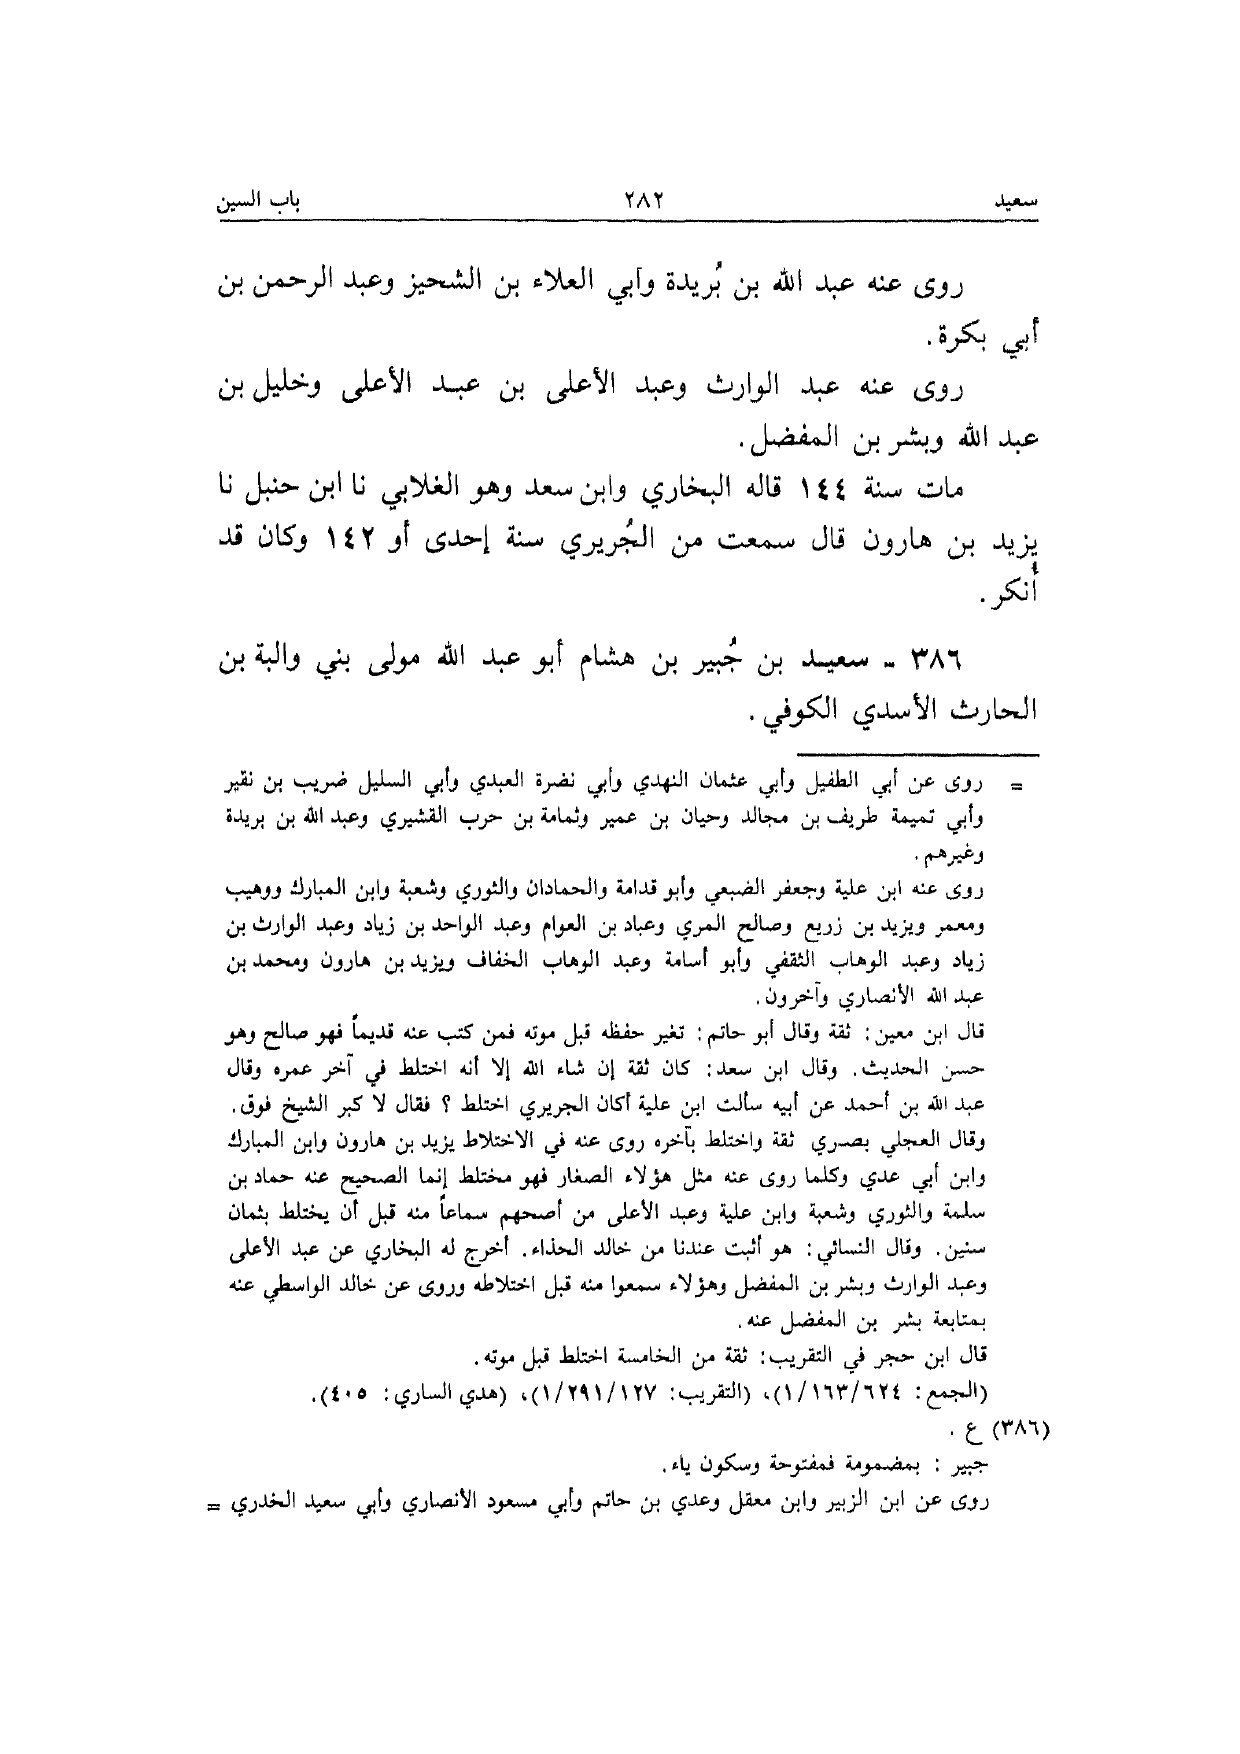 سعيد ٢٨٢ باب السين
روى عنه عبد الله بن بُريدة وأبي العلاء بن الشحيز وعبد الرحمن بن
أبي بكرة.
روى عنه عبد الوارث وعبد الأعلى بن عبد الأعلى وخليل بن
عبد الله وبشر بن المفضل.
مات سنة ١٤٤ قاله البخاري وابن سعد وهو الغلابي نا ابن حنبل نا
يزيد بن هارون قال سمعت من الجُريري سنة إحدى أو ١٤٢ وكان قد
أُنكر.
٣٨٦ - سعيد بن جُبير بن هشام أبو عبد الله مولى بني والبة بن
الحارث الأسدي الكوفي.
= روى عن أبي الطفيل وأبي عثمان النهدي وأبي نضرة العبدي وأبي السليل ضريب بن نقير
وأبي تميمة طريف بن مجالد وحيان بن عمير وثمامة بن حرب القشيري وعبد الله بن بريدة
وغيرهم.
روى عنه ابن علية وجعفر الضبعي وأبو قدامة والحمادان والثوري وشعبة وابن المبارك ووهيب
ومعمر ويزيد بن زريع وصالح المري وعباد بن العوام وعبد الواحد بن زياد وعبد الوارث بن
زياد وعبد الوهاب الثقفي وأبو أسامة وعبد الوهاب الخفاف ويزيد بن هارون ومحمد بن
عبد الله الأنصاري وآخرون.
قال ابن معين: ثقة وقال أبو حاتم: تغير حفظه قبل موته فمن كتب عنه قديماً فهو صالح وهو
حسن الحديث. وقال ابن سعد: كان ثقة إن شاء الله إلا أنه اختلط في آخر عمره وقال
عبد الله بن أحمد عن أبيه سألت ابن علية أكان الجريري اختلط ؟ فقال لا كبر الشيخ فوق.
وقال العجلي بصري ثقة واختلط بآخره روى عنه في الاختلاط يزيد بن هارون وابن المبارك
وابن أبي عدي وكلما روى عنه مثل هؤلاء الصغار فهو مختلط إنما الصحيح عنه حماد بن
سلمة والثوري وشعبة وابن علية وعبد الأعلى من أصحهم سماعاً منه قبل أن يختلط بثمان
سنين. وقال النسائي: هو أثبت عندنا من خالد الحذاء. أخرج له البخاري عن عبد الأعلى
وعبد الوارث وبشر بن المفضل وهؤلاء سمعوا منه قبل اختلاطه وروى عن خالد الواسطي عنه
بمتابعة بشر بن المفضل عنه.
قال ابن حجر في التقريب: ثقة من الخامسة اختلط قبل موته.
(الجمع: ١/١٦٣/٦٢٤)، (التقريب: ١/٢٩١/١٢٧)، (هدي الساري: ٤٠٥).
(٣٨٦) ع .
جبير : بمضمومة فمفتوحة وسكون ياء.
روى عن ابن الزبير وابن معقل وعدي بن حاتم وأبي مسعود الأنصاري وأبي سعيد الخدري =